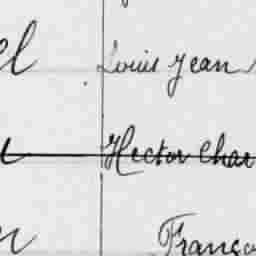 el Louis Jean
Hector Char
Franço